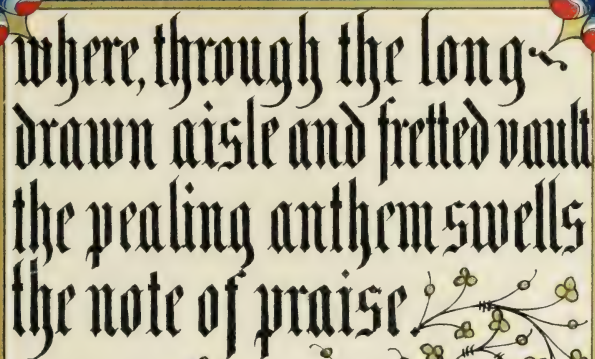 where, through the long-
drawn aisle and fretted vault
the pealing anthem swells
the note of praise.